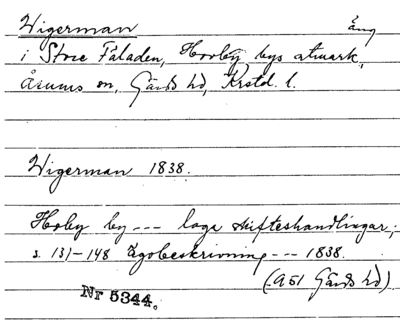 Wigerman äng
i Store Faladen, Horby bys utmark,
Årums sn, Gärds hd, Krstd. l.
Wigerman 1838.
Horby by --- laga skifteshandlingar,
s. 131-148 Egobeskrivning --- 1838.
(A51 Gärds hd)
Nr 5344.